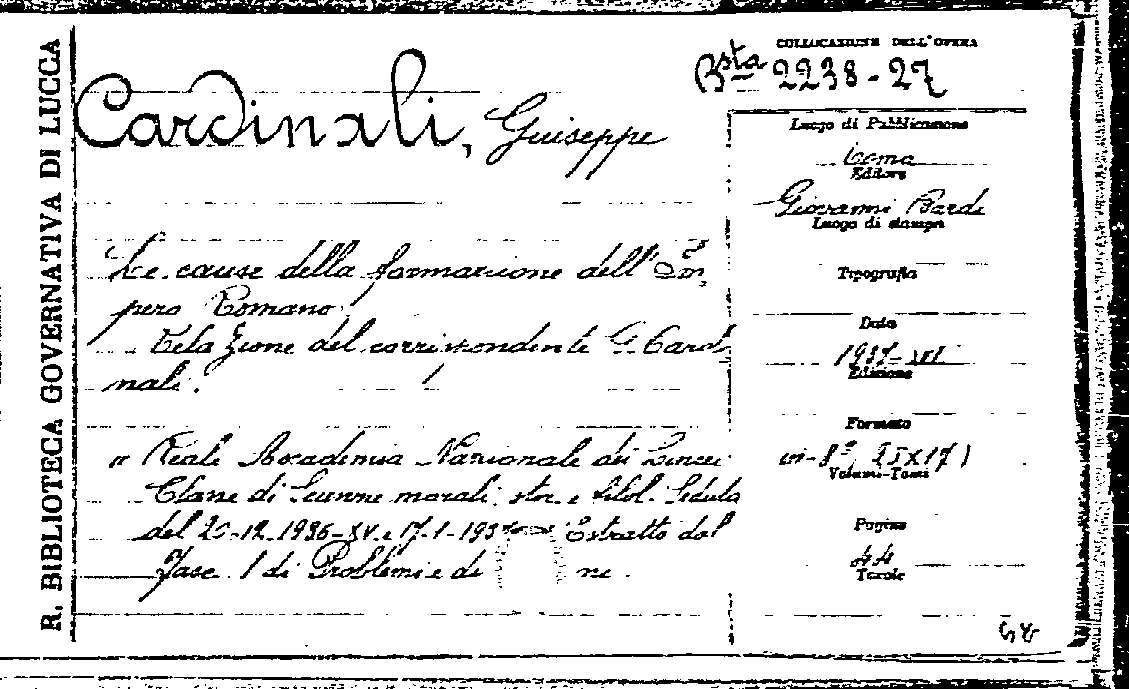 R. BIBLIOTECA GOVERNATIVA DI LUCCA
COLLOCAZIONE DELL'OPERA
Bsta 2238-27
Cardinali, Giuseppe
Luogo di Pubblicazione
Roma
Editore
Giovanni Bardi
Luogo di stampa
Le cause della formazione dell'Im
pero Romano
Tipografia
Relazione del corrispondente G. Cardi
nali.
Data
1937-XVI
Edizione
Formato
in-8° 25X17)
Volumi-Tomi
" Reale Accademia Nazionale dei Lincei
Classe di Scienze morali, stor. e filol. Seduta
del 20-12-1936-XV e 17-1-1937 Estratto dal
Fasc. 1 di Problemi e di
Pagine
44
Tavole